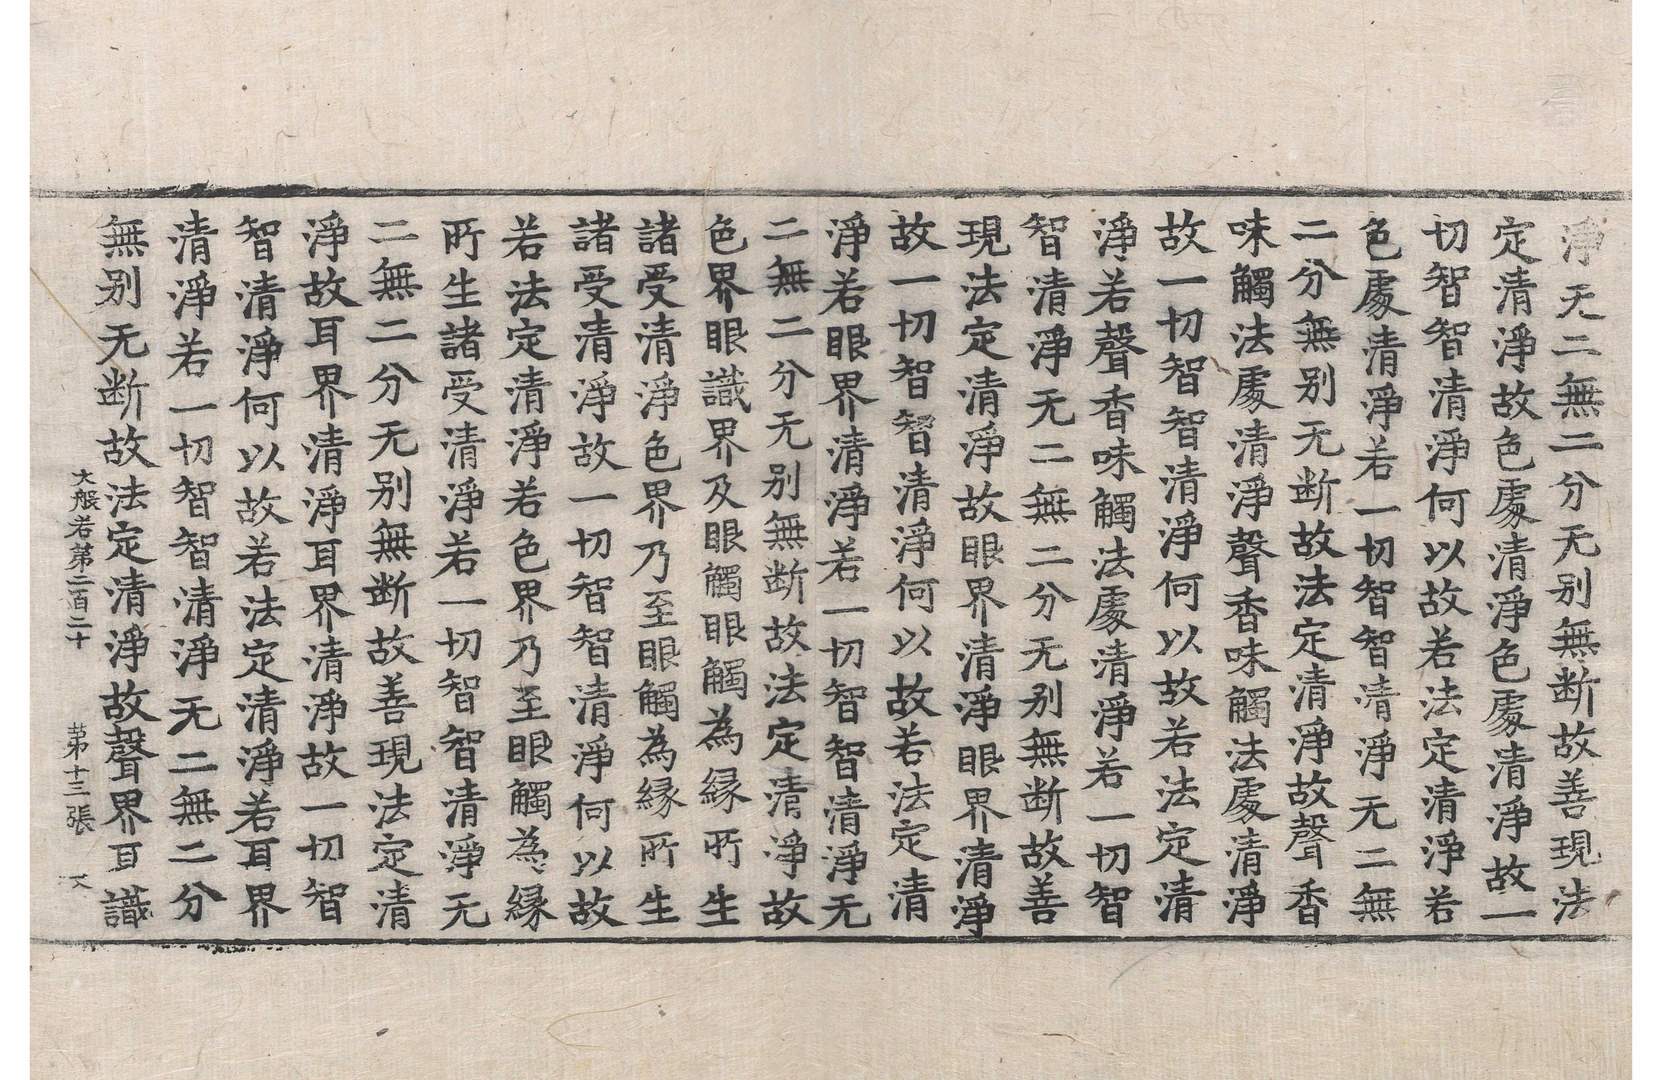 淨无二無二分无别無断故善現法
定清淨故色處清淨色處清淨故一
切智智清淨何以故若法定清淨若
色處清淨若一切智智清淨无二無
二分無别无断故法定清淨故聲香
味觸法處清淨聲香味觸法處清淨
故一切智智清淨何以故若法定清
淨若聲香味觸法處清淨若一切智
智清淨无二無二分无别無断故善
現法定清淨故眼界清淨眼界清淨
故一切智智清淨何以故若法定清
淨若眼界清淨若一切智智清淨无
二無二分无别無断故法定清淨故
色界眼識界及眼觸眼觸為縁所生
諸受清淨色界乃至眼觸為縁所生
諸受清淨故一切智智清淨何以故
若法定清淨若色界乃至眼觸為縁
所生諸受清淨若一切智智清淨无
二無二分无别無断故善現法定清
淨故耳界清淨耳界清淨故一切智
智清淨何以故若法定清淨若耳界
清淨若一切智智清淨无二無二分
無别无断故法定清淨故聲界耳識
大般若第二百二十 第十三張